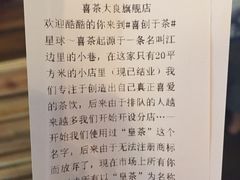 喜茶大良旗舰店
欢迎酷酷的你来到#喜创于茶#
星球一喜茶起源于一条名叫江
边里的小巷，在这家只有20平
方米的小店里（现已结业）我
们专注于创造出自己真正喜爱
的茶饮，后来由于排队的人越
来越多我们开始开设分店……一
开始我们使用过“皇茶”这个
名字，后来由于无法注册商标
而放弃了，现在市场上所有你
所有以“皇茶”为名称